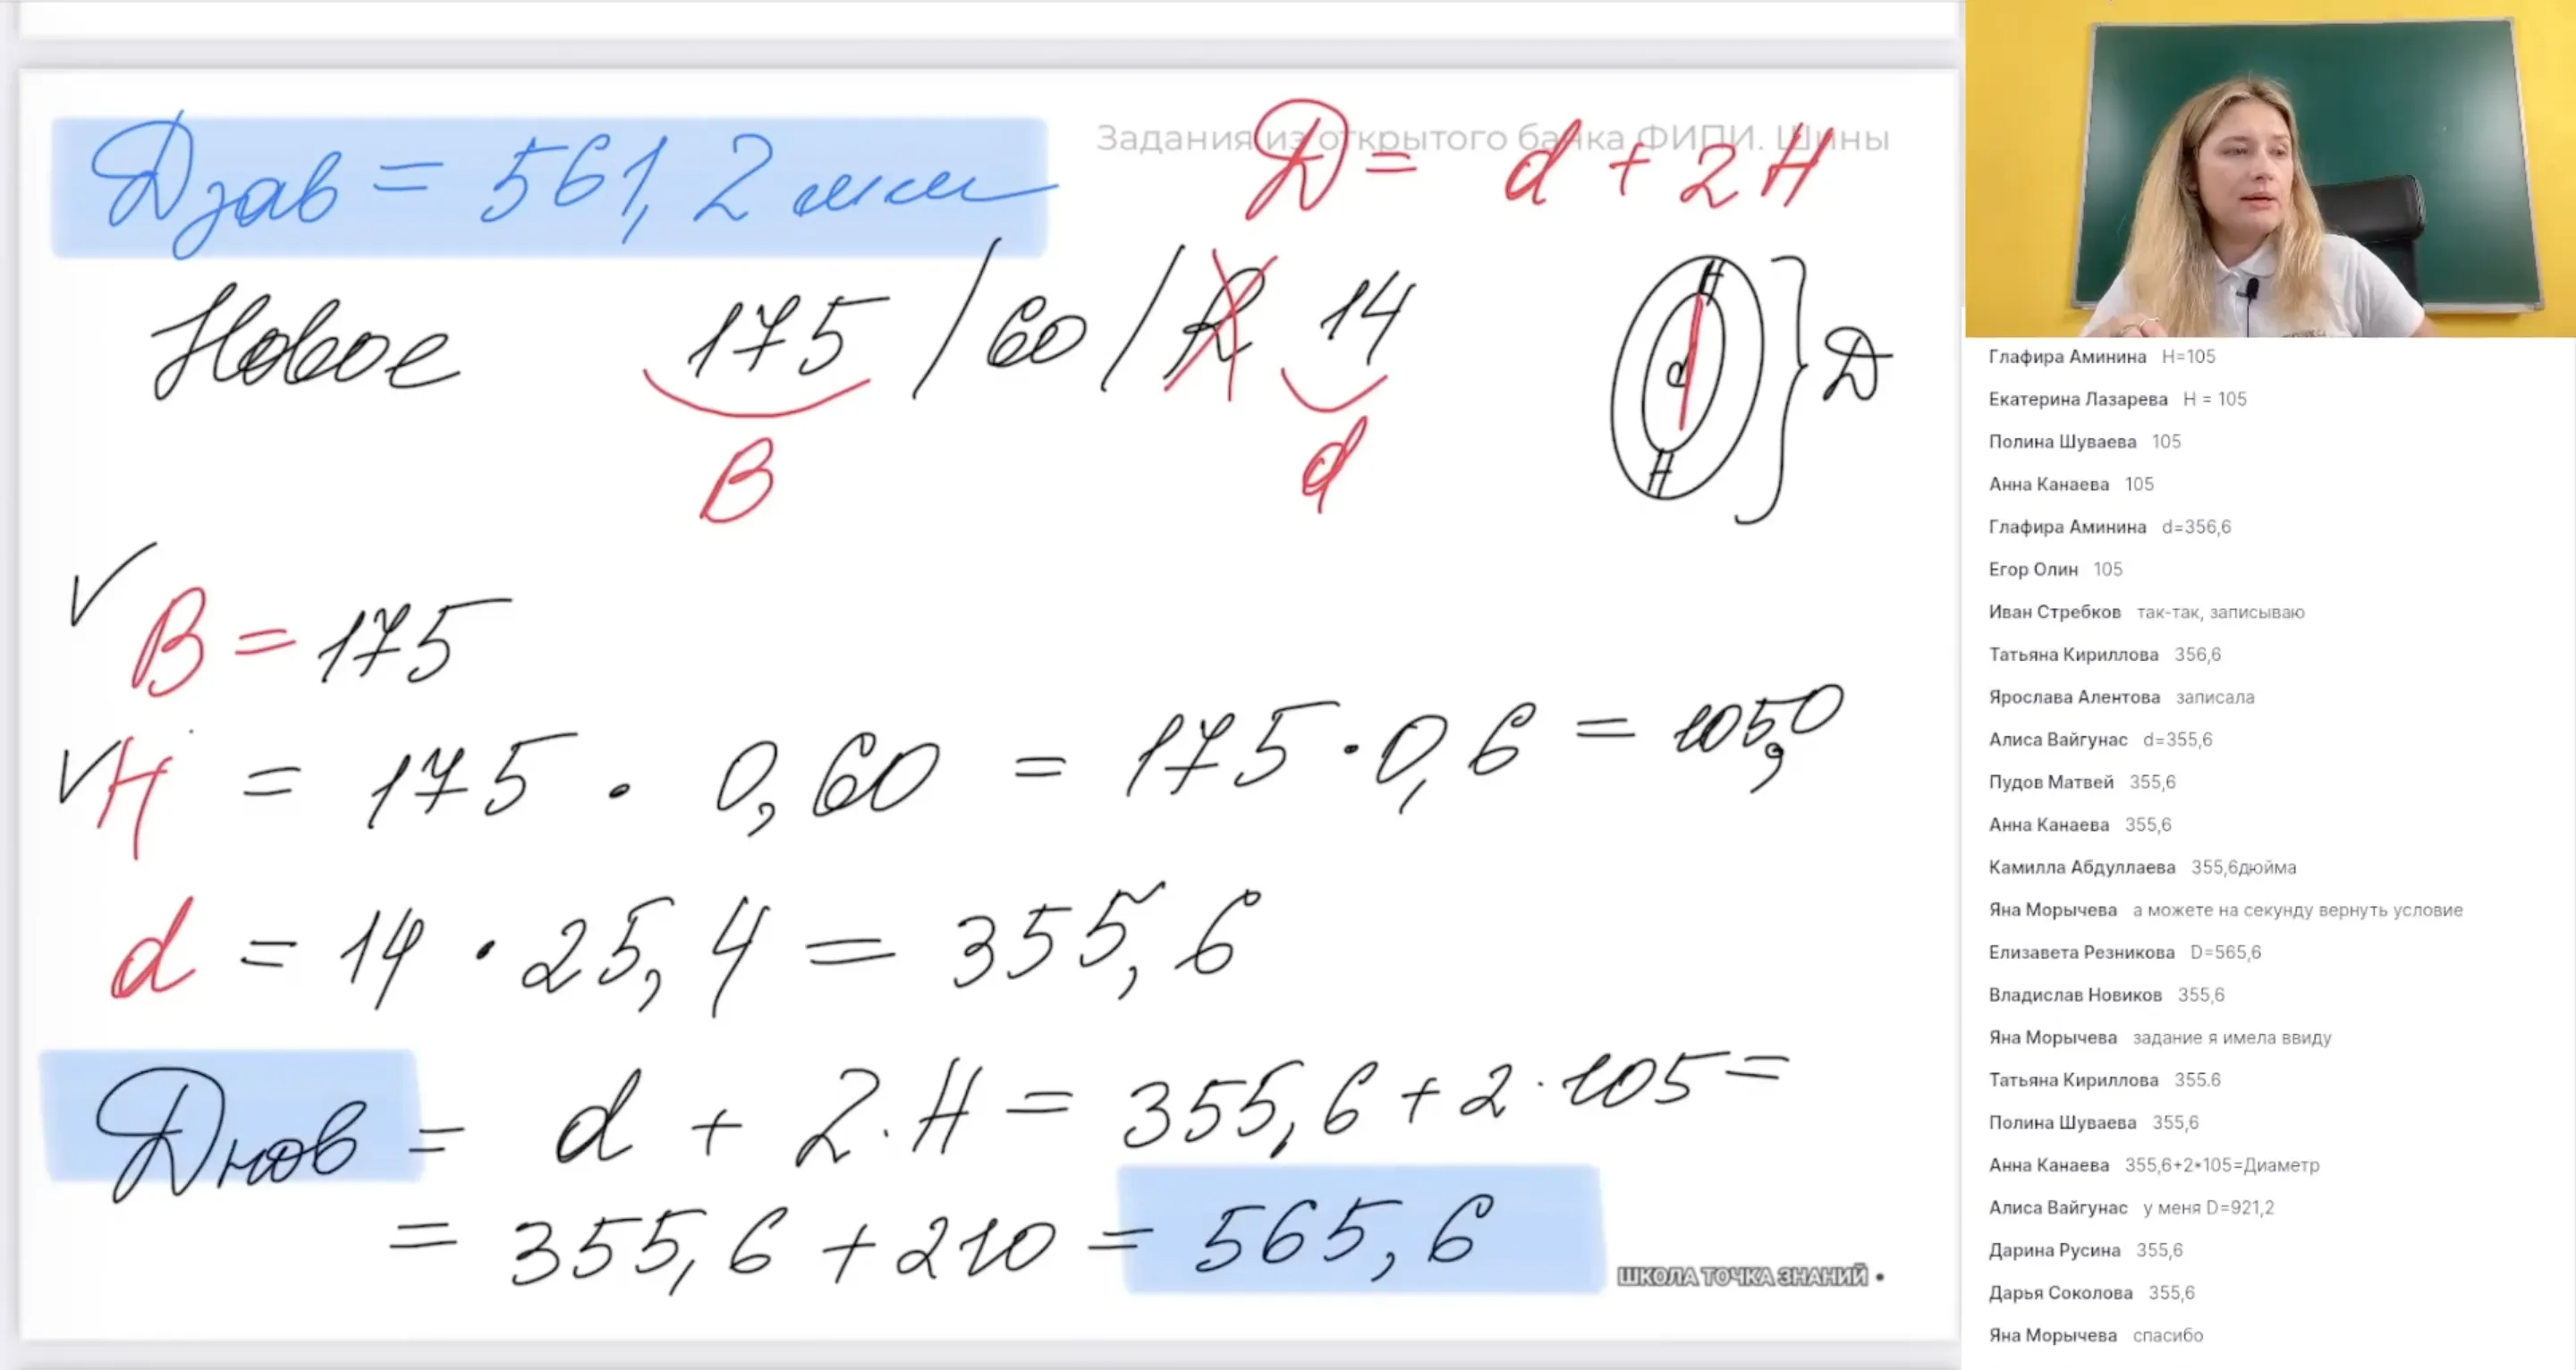 Задания из открытого банка ФИПИ. Шины
Dзав = 561,2 мм
D = d + 2H
Новое 175 / 60 / R 14
B
d
H
d
H
D
B = 175
H = 175 · 0,60 = 175 · 0,6 = 105,0
d = 14 · 25,4 = 355,6
Dнов = d + 2 · H = 355,6 + 2 · 105 =
= 355,6 + 210 = 565,6
ШКОЛА ТОЧКА ЗНАНИЙ •
Глафира Аминина H=105
Екатерина Лазарева H = 105
Полина Шуваева 105
Анна Канаева 105
Глафира Аминина d=356,6
Егор Олин 105
Иван Стребков так-так, записываю
Татьяна Кириллова 356,6
Ярослава Алентова записала
Алиса Вайгунас d=355,6
Пудов Матвей 355,6
Анна Канаева 355,6
Камилла Абдуллаева 355,6дюйма
Яна Морычева а можете на секунду вернуть условие
Елизавета Резникова D=565,6
Владислав Новиков 355,6
Яна Морычева задание я имела ввиду
Татьяна Кириллова 355.6
Полина Шуваева 355,6
Анна Канаева 355,6+2*105=Диаметр
Алиса Вайгунас у меня D=921,2
Дарина Русина 355,6
Дарья Соколова 355,6
Яна Морычева спасибо